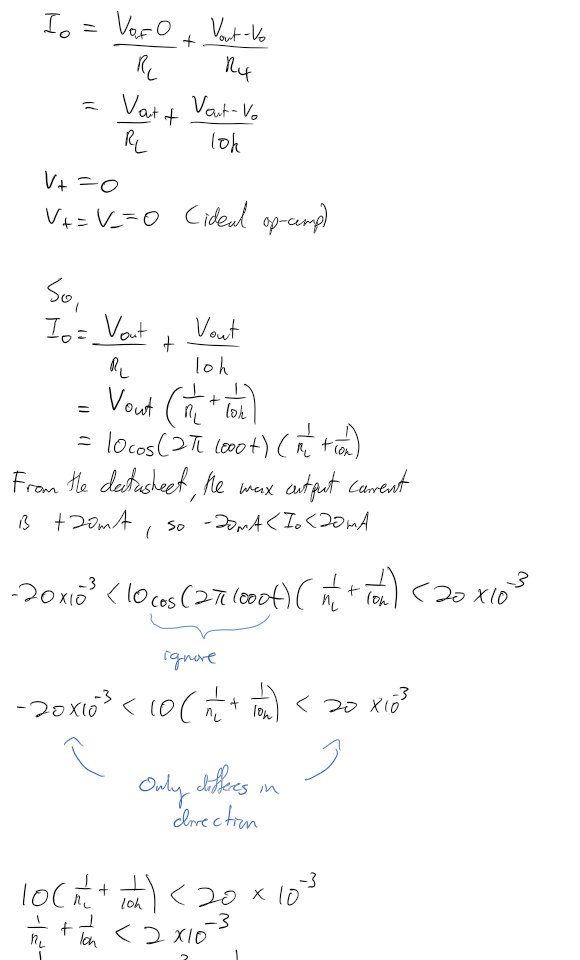 I₀ = (Vout-0)/R_L + (Vout-V₀)/R₄
= Vout/R_L + (Vout-V₀)/10k
V₊ = 0
V₊ = V₋ = 0 (ideal op-amp)
So,
I₀ = Vout/R_L + Vout/10k
= Vout (1/R_L + 1/10k)
= 10cos(2π 1000t) (1/R_L + 1/10k)
From the datasheet, the max output current
is +20mA, so -20mA < I₀ < 20mA
-20×10⁻³ < 10cos(2π1000t) (1/R_L + 1/10k) < 20×10⁻³
ignore
-20×10⁻³ < 10(1/R_L + 1/10k) < 20×10⁻³
Only differs in
direction
10(1/R_L + 1/10k) < 20 × 10⁻³
1/R_L + 1/10k < 2×10⁻³